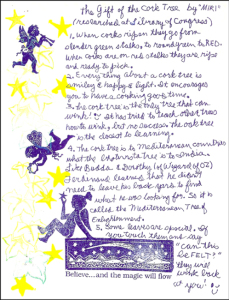 The Gift of the Cork Tree by "MIRI"
(researched at Library of Congress)
1. When corks ripen they go from
slender green stalks, to round green to RED.
When corks are on red stalks they are ripe
and ready to pick.
2. Everything about a cork tree is
smiley & happy & light. It encourages
you to have cooking good times.
3. The cork tree is the only tree that can
wink! It has tried to teach other trees
how to wink, but no success. The oak tree
is the closest to learning.
4. The cork tree is to Mediterranean countries
what the tree is to India.
Like Budda & Dorothy (of Wizard of OZ)
Ferdinand learned that he didn't
need to leave his back yard to find
what he was looking for. So it is
called the Mediterranean Tree of
Enlightenment.
5. Some leaves are special. If
you touch them and say
"can this
Be FELT?"
they will
wink back
at you!
Believe...and the magic will flow